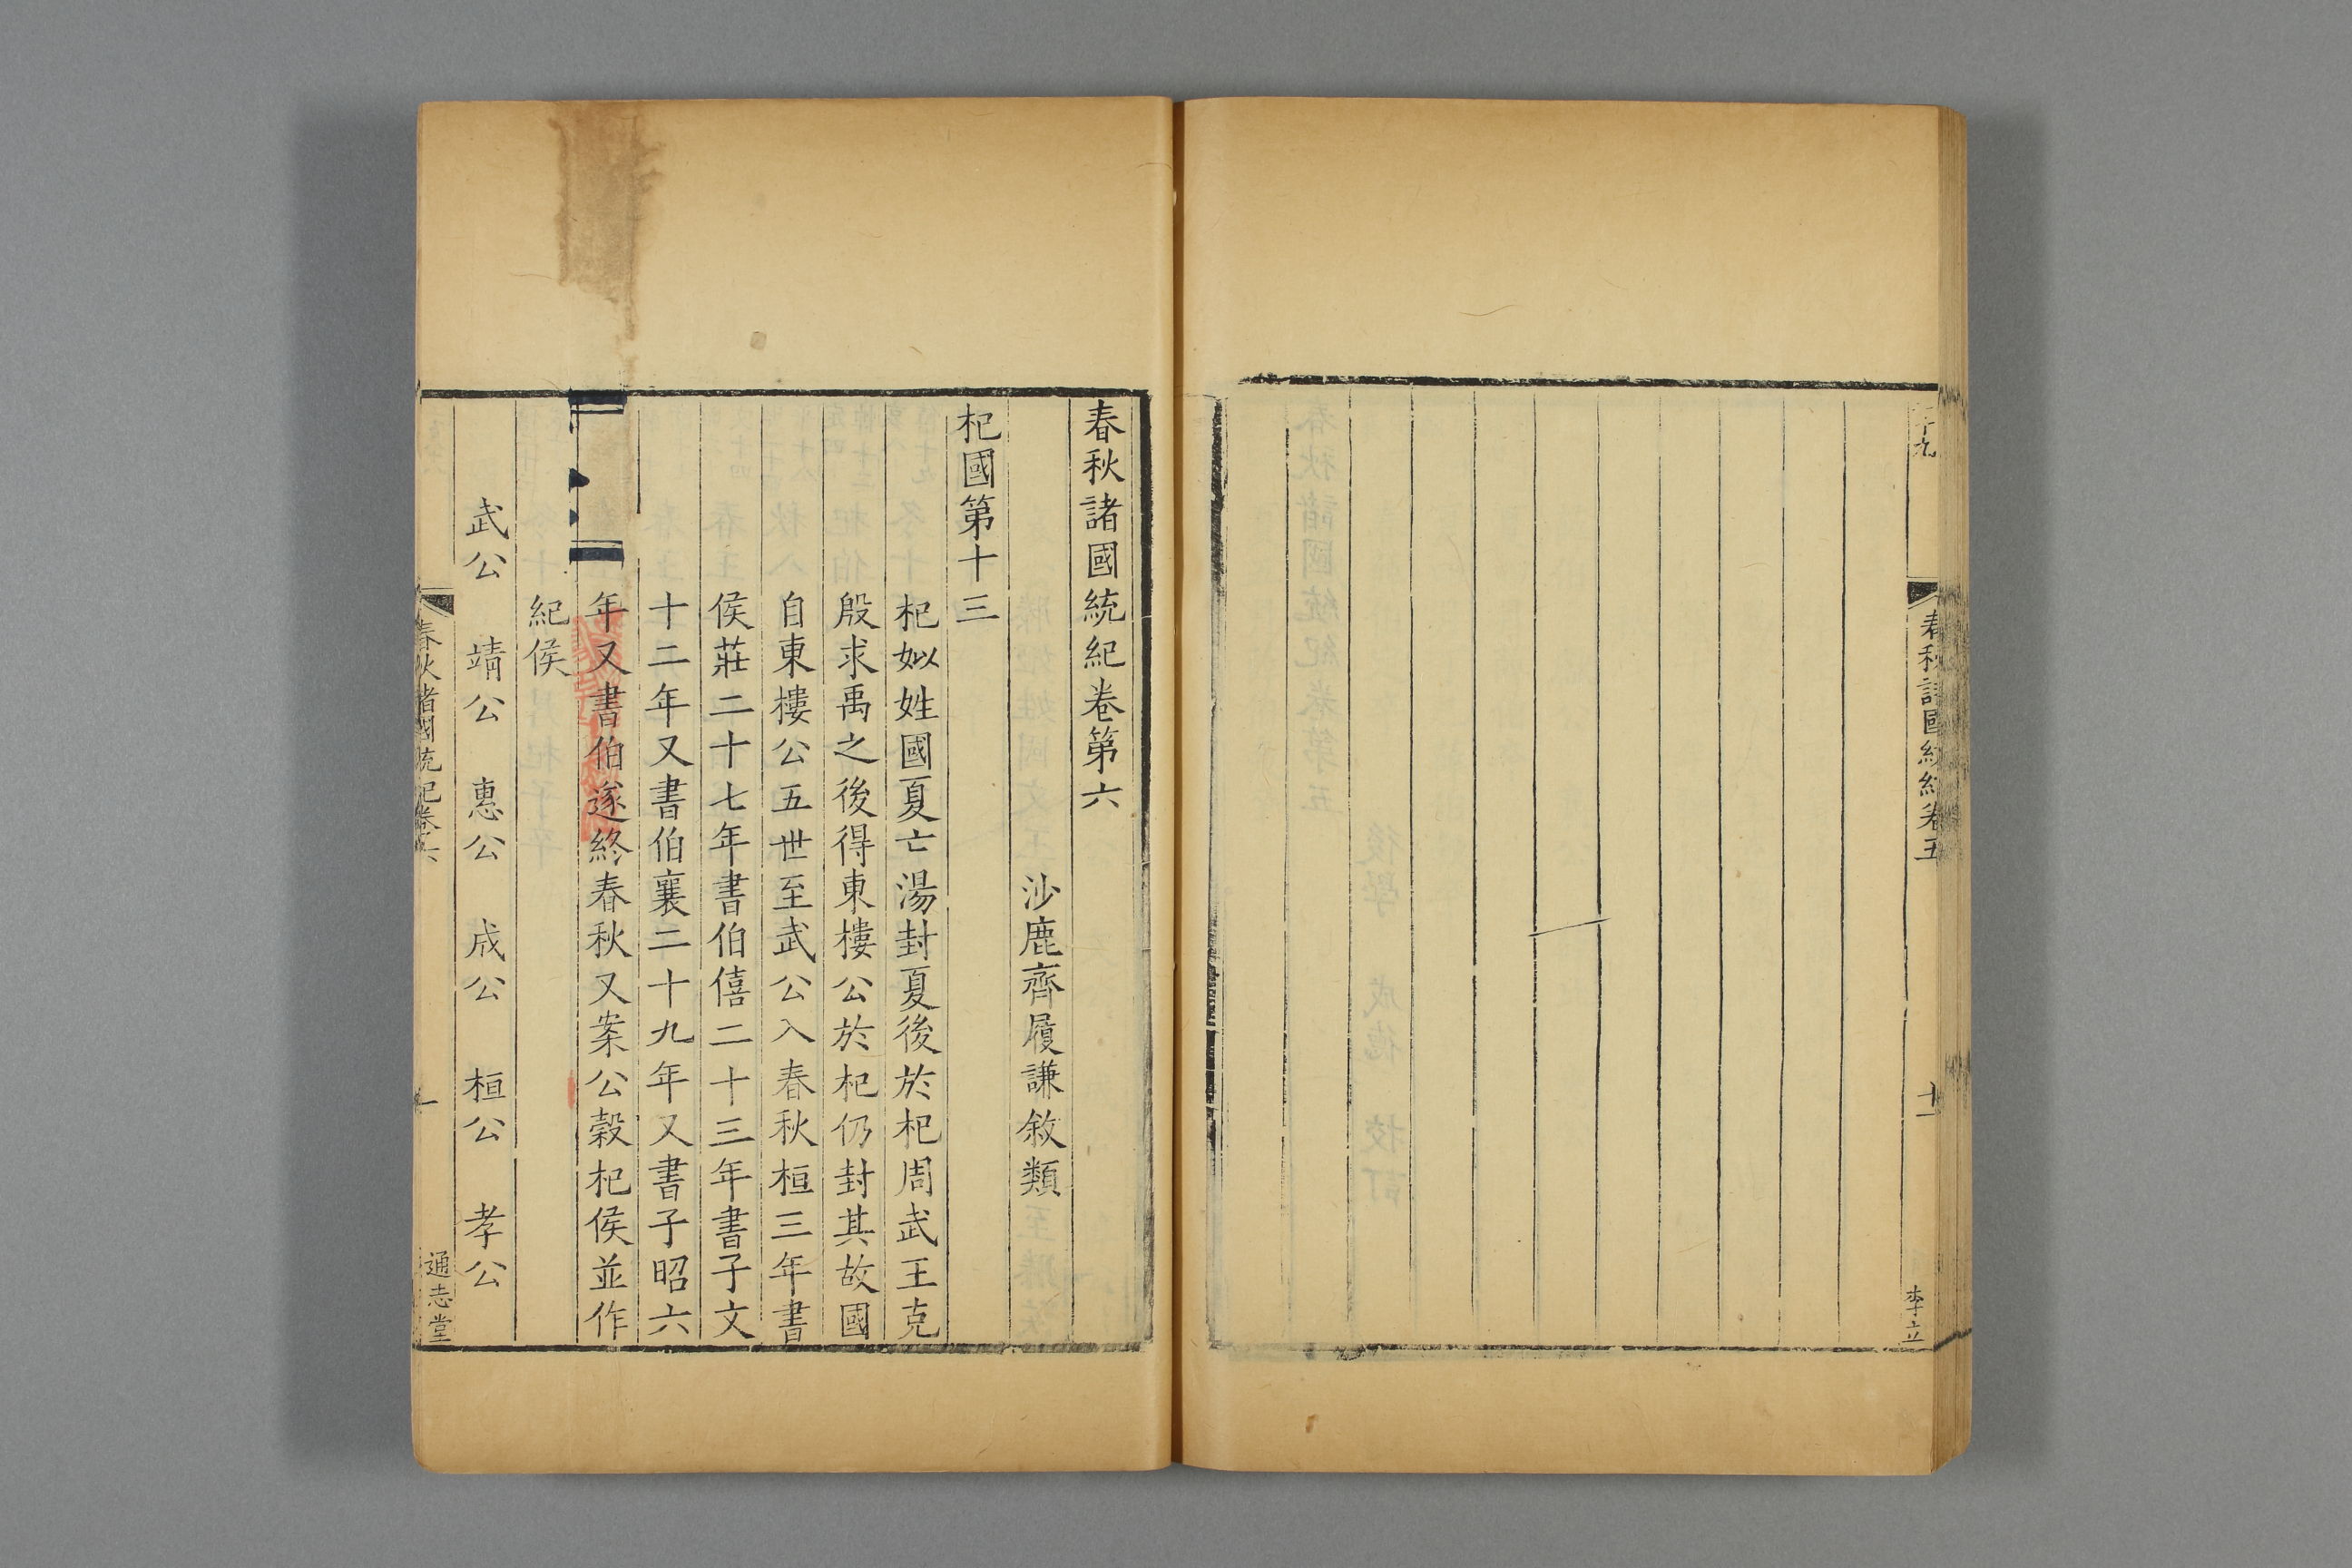 春秋諸國統紀卷五
十一
李立
春秋諸國統紀卷第六
沙鹿齊履謙敘類
杞國第十三
杞姒姓國夏亡湯封夏後於杞周武王克
殷求禹之後得東樓公於杞仍封其故國
自東樓公五世至武公入春秋桓三年書
侯莊二十七年書伯僖二十三年書子文
十二年又書伯襄二十九年又書子昭六
年又書伯遂終春秋又案公穀杞侯並作
紀侯
武公 靖公 惠公 成公 桓公 孝公
春秋諸國統紀卷六
一
通志堂